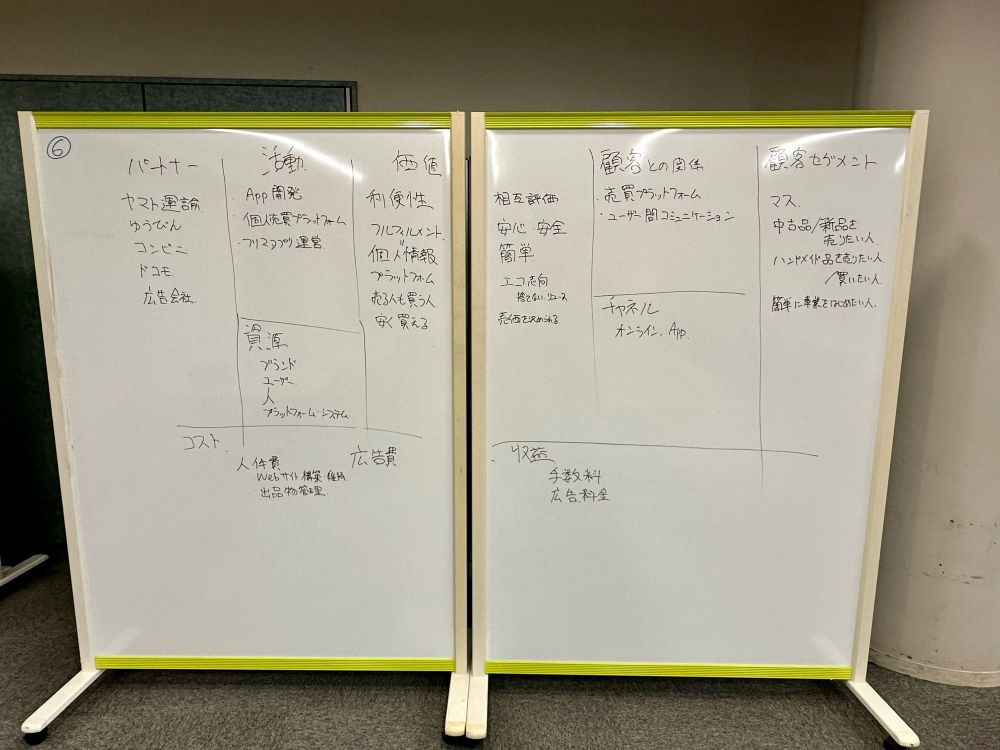 ⑥
パートナー
ヤマト運諭
ゆうびん
コンビニ
ドコモ
広告会社
活動
App 開発
・個人売買プラットフォーム
・フリマアプリ運営
資源
ブランド
ユーザー
人
プラットフォーム・システム
価値
利便性
フルフィルメント
個人情報
プラットフォーム
売る人も買う人
安く買える
相互評価
安心・安全
簡単
エコ志向
捨てない リユース
売価を決められる
顧客との関係
・売買プラットフォーム
・ユーザー間コミュニケーション
チャネル
オンライン、App
顧客セグメント
マス
中古品/新品を
売りたい人
ハンドメイド品を売りたい人
/買いたい人
簡単に事業をはじめたい人
コスト
人件費
Webサイト構築・維持
・出品物管理
広告費
収益
手数料
広告料金